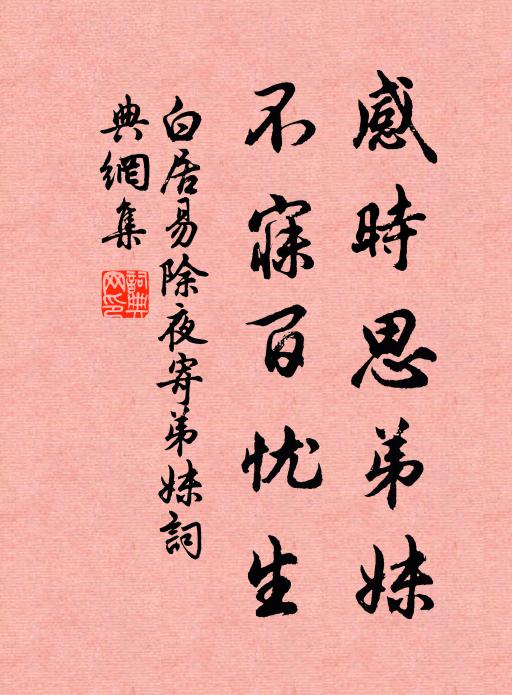 感時思弟妹
不寐百忧生
白居易除夜寄弟妹詞
典網集
詞典
网印